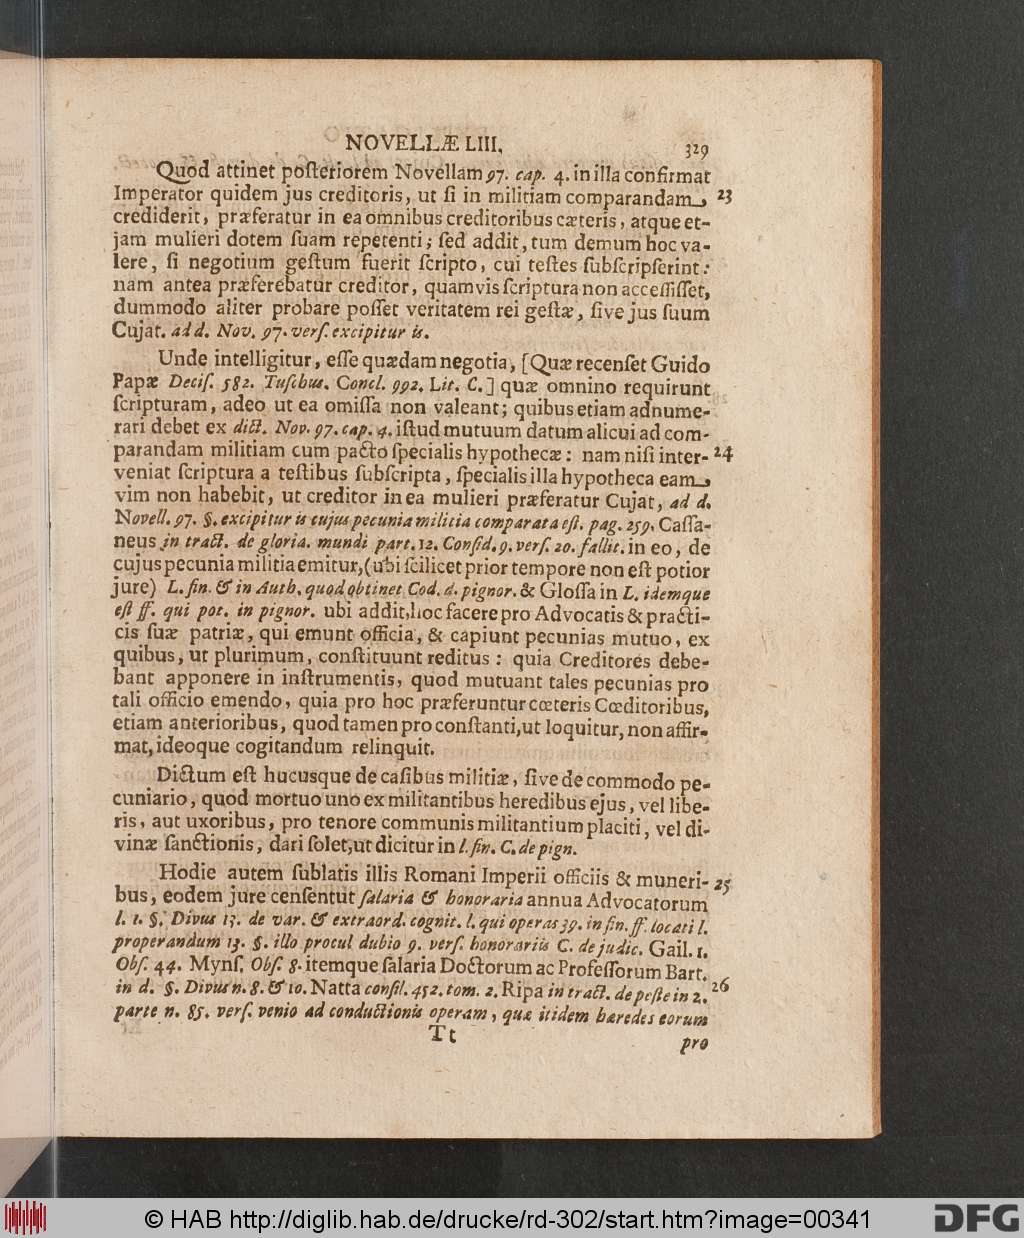 NOVELLÆ LIII.
329
Quod attinet poſteriorem Novellam 97. cap. 4. in illa confirmat
Imperator quidem jus creditoris, ut ſi in militiam comparandam, 23
crediderit, præferatur in ea omnibus creditoribus cæteris, atque et-
jam mulieri dotem ſuam repetenti; ſed addit, tum demum hoc va-
lere, ſi negotium geſtum fuerit ſcripto, cui teſtes ſubſcripſerint:
nam antea præferebatur creditor, quamvis ſcriptura non acceſſiſſet,
dummodo aliter probare poſſet veritatem rei geſtæ, ſive jus ſuum
Cujat. ad d. Nov. 97. verſ. excipitur is.
Unde intelligitur, eſſe quædam negotia, [Quæ recenſet Guido
Papæ Deciſ. 582. Tuſchus. Concl. 992. Lit. C.] quæ omnino requirunt
ſcripturam, adeo ut ea omiſſa non valeant; quibus etiam adnume-
rari debet ex dict. Nov. 97. cap. 4. iſtud mutuum datum alicui ad com-
parandam militiam cum pacto ſpecialis hypothecæ: nam niſi inter- 24
veniat ſcriptura a teſtibus ſubſcripta, ſpecialis illa hypotheca eam,
vim non habebit, ut creditor in ea mulieri præferatur Cujat, ad d.
Novell. 97. §. excipitur is cujus pecunia militia comparata eſt. pag. 259. Caſſa-
neus in tract. de gloria. mundi part. 12. Conſid. 9. verſ. 20. fallit. in eo, de
cujus pecunia militia emitur, (ubi ſcilicet prior tempore non eſt potior
jure) L. fin. & in Auth. quod obtinet Cod. d. pignor. & Gloſſa in L. idemque
eſt ff. qui pot. in pignor. ubi addit, hoc facere pro Advocatis & practi-
cis ſuæ patriæ, qui emunt officia, & capiunt pecunias mutuo, ex
quibus, ut plurimum, conſtituunt reditus: quia Creditores debe-
bant apponere in inſtrumentis, quod mutuant tales pecunias pro
tali officio emendo, quia pro hoc præferuntur cœteris Cœditoribus,
etiam anterioribus, quod tamen pro conſtanti, ut loquitur, non affir-
mat, ideoque cogitandum relinquit.
Dictum eſt hucusque de caſibus militiæ, ſive de commodo pe-
cuniario, quod mortuo uno ex militantibus heredibus ejus, vel libe-
ris, aut uxoribus, pro tenore communis militantium placiti, vel di-
vinæ ſanctionis, dari ſolet, ut dicitur in l. fin. C. de pign.
Hodie autem ſublatis illis Romani Imperii officiis & muneri- 25
bus, eodem jure cenſentut ſalaria & honoraria annua Advocatorum
l. 1. §. Divus 13. de var. & extraord. cognit. l. qui operas 39. in fin. ff. locati l.
properandum 13. §. illo procul dubio 9. verſ. honorariis C. de judic. Gail. 1.
Obſ. 44. Mynſ. Obſ. 8. itemque ſalaria Doctorum ac Profeſſorum Bart.
in d. §. Divus n. 8. & 10. Natta conſil. 452. tom. 2. Ripa in tract. de peſte in 2. 26
parte n. 85. verſ. venio ad conductionis operam, quæ itidem hæredes eorum
Tt
pro
© HAB http://diglib.hab.de/drucke/rd-302/start.htm?image=00341
DFG